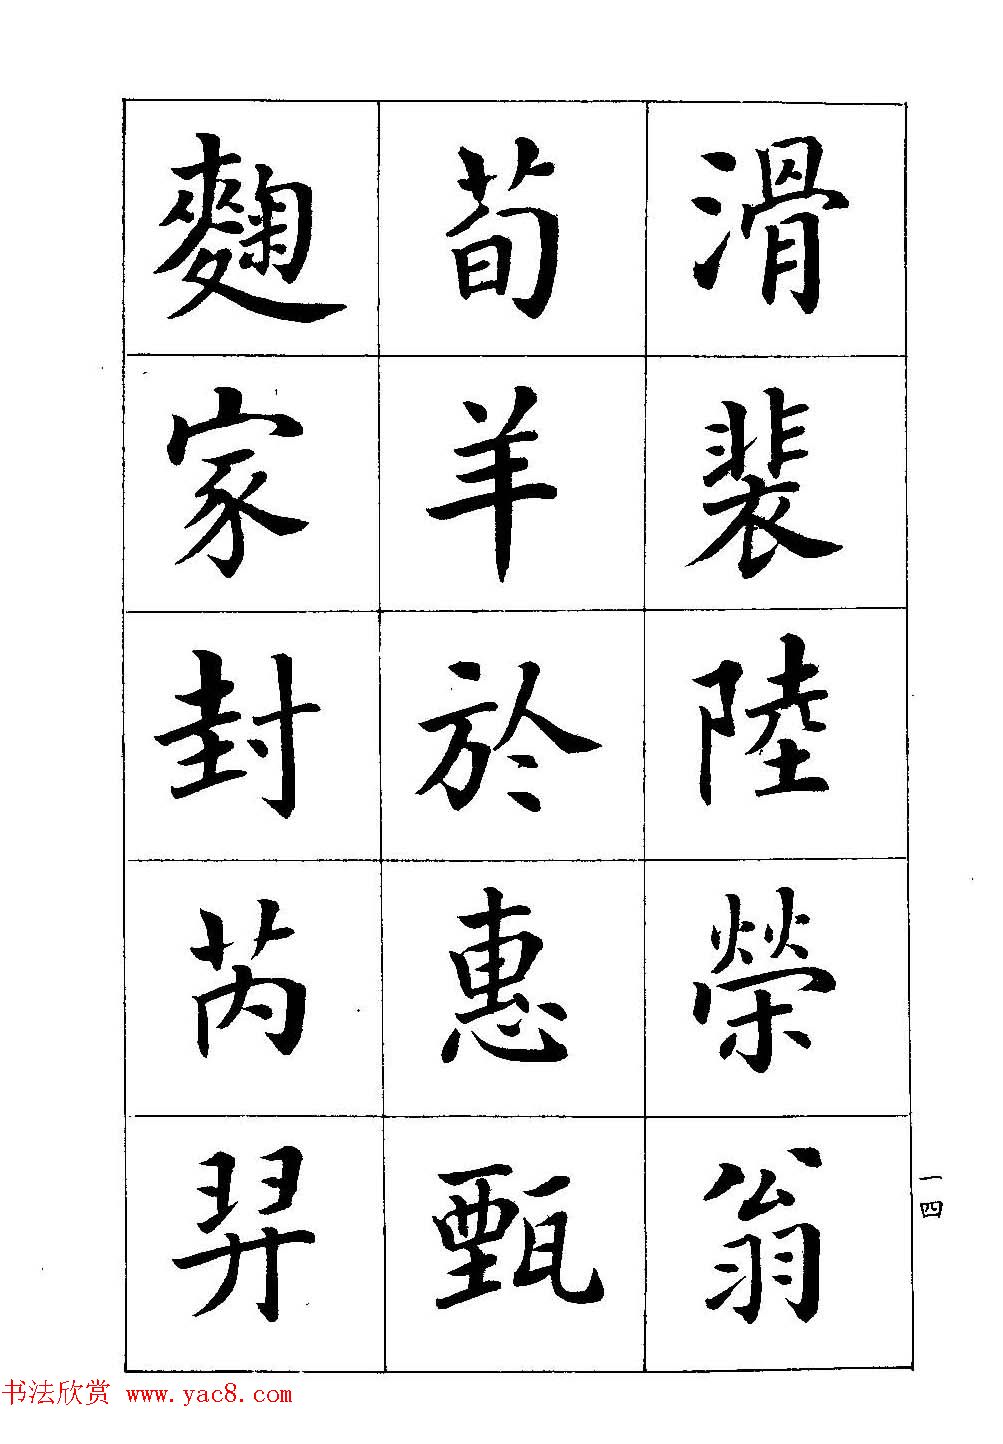 滑裴陸榮翁
荀羊於惠甄
麴家封芮羿
一四
书法欣赏 www.yac8.com